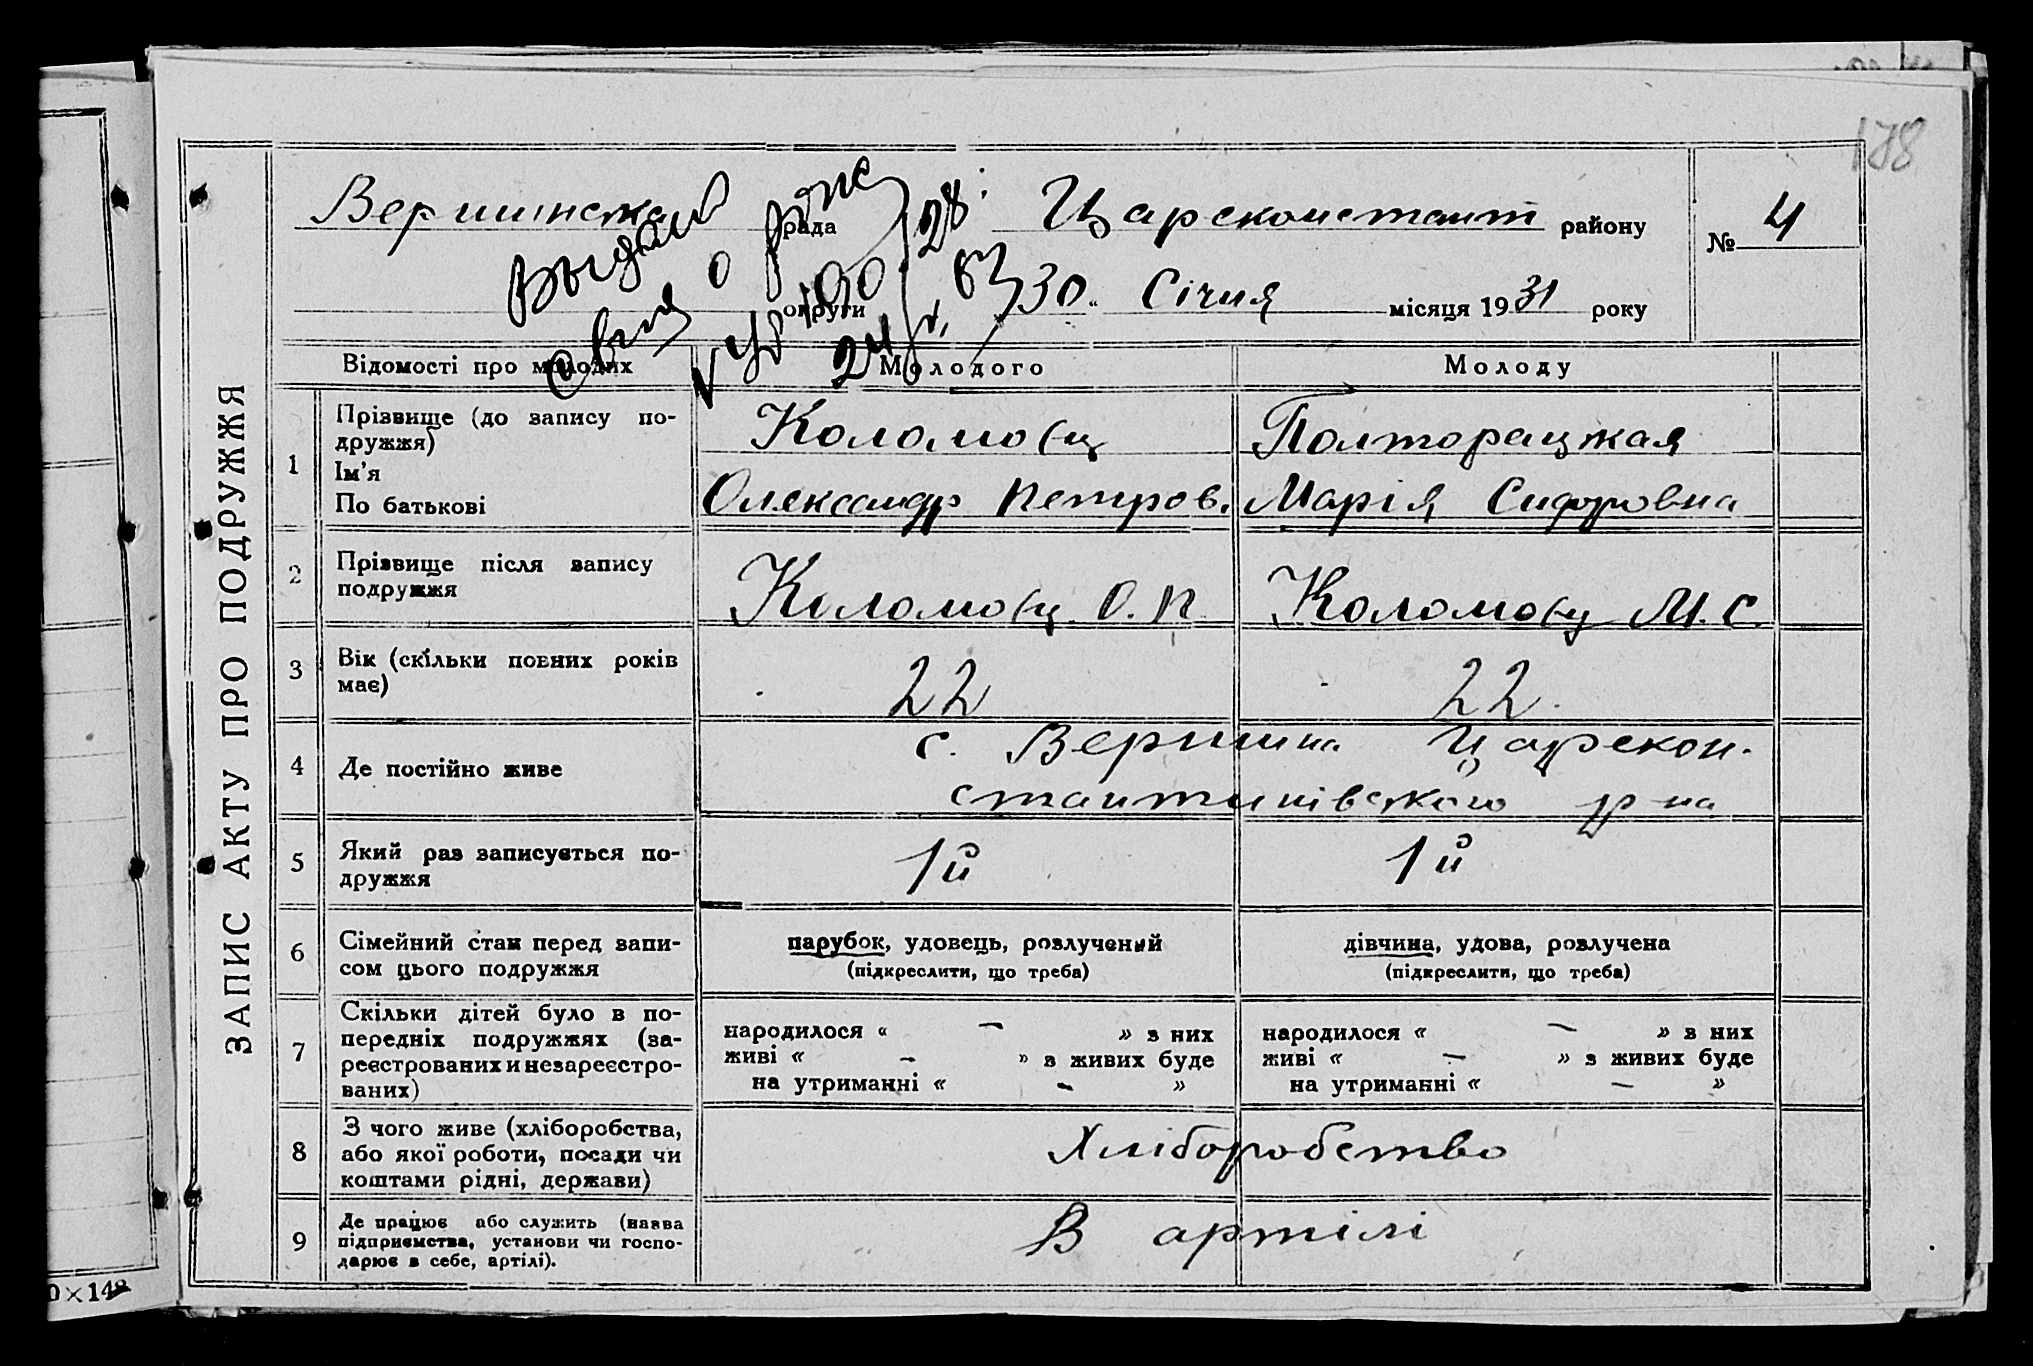 178
Вершинска рада Царсконстант району № 4
округи 30 „ Січня місяця 1931 року
Выдано
о
24 63
28
ЗАПИС АКТУ ПРО ПОДРУЖЖЯ
Відомості про молодих Молодого Молоду
1 Прізвище (до запису по-
дружжя)
Ім'я
По батькові
Коломоєц
Олександр Петров.
Полторацкая
Марія Сидоровна
2 Прізвище після запису
подружжя
Коломоєц О. П.
Коломоєц М. С.
3 Вік (скільки повних років
має)
22 22.
4 Де постійно живе
с. Вершина Царскон-
стантинівского р-на
5 Який раз записується по-
дружжя
1й 1й
6 Сімейний стан перед запи-
сом цього подружжя
парубок, удовець, розлучений
(підкреслити, що треба)
дівчина, удова, розлучена
(підкреслити, що треба)
7 Скільки дітей було в по-
передніх подружжях (за-
реєстрованих и незареєстро-
ваних)
народилося « — » з них
живі « — » з живих буде
на утриманні « — »
народилося « — » з них
живі « — » з живих буде
на утриманні « — »
8 З чого живе (хліборобства,
або якої роботи, посади чи
коштами рідні, держави)
Хліборобство
9 Де працює або служить (назва
підприємства, установи чи госпо-
дарює в себе, артілі).
В артілі
0×148